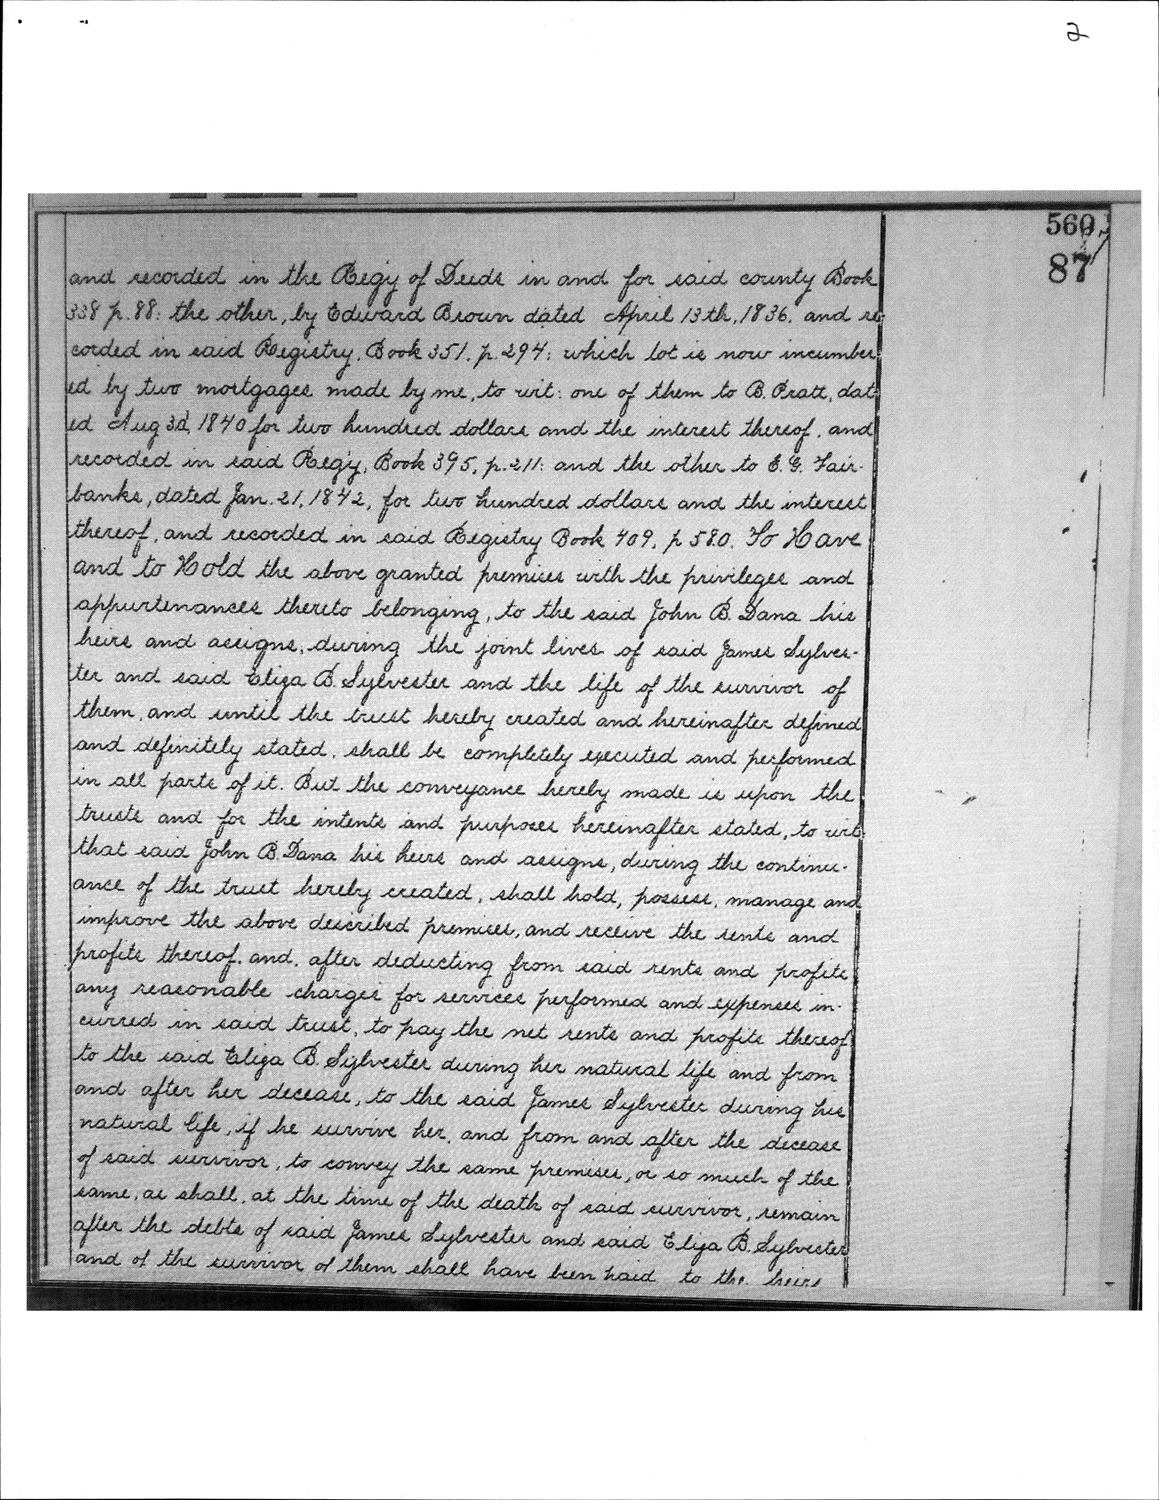 2
560
87
and recorded in the Reg'y of Deeds in and for said county Book
338 p. 88: the other, by Edward Brown dated April 13th, 1836, and re-
corded in said Registry, Book 351, p. 294: which lot is now incumber
ed by two mortgages made by me, to wit: one of them to B. Pratt, dat-
ed Aug 3d, 1840 for two hundred dollars and the interest thereof, and
recorded in said Reg'y, Book 395, p. 211: and the other to E. G. Fair-
banks, dated Jan. 21, 1842, for two hundred dollars and the interest
thereof, and recorded in said Registry Book 409, p 580. To Have
and to Hold the above granted premises with the privileges and
appurtenances thereto belonging, to the said John B. Dana his
heirs and assigns, during the joint lives of said James Sylves-
ter and said Eliza B. Sylvester and the life of the survivor of
them, and until the trust hereby created and hereinafter defined
and definitely stated, shall be completely executed and performed
in all parts of it. But the conveyance hereby made is upon the
trusts and for the intents and purposes hereinafter stated, to wit:
that said John B. Dana his heirs and assigns, during the continu-
ance of the trust hereby created, shall hold, possess, manage and
improve the above described premises, and receive the rents and
profits thereof, and, after deducting from said rents and profits
any reasonable charges for services performed and expenses in-
curred in said trust, to pay the net rents and profits thereof
to the said Eliza B. Sylvester during her natural life and from
and after her decease, to the said James Sylvester during his
natural life, if he survive her, and from and after the decease
of said survivor, to convey the same premises, or so much of the
same, as shall, at the time of the death of said survivor, remain
after the debts of said James Sylvester and said Eliza B. Sylvester
and of the survivor of them shall have been paid to the heirs